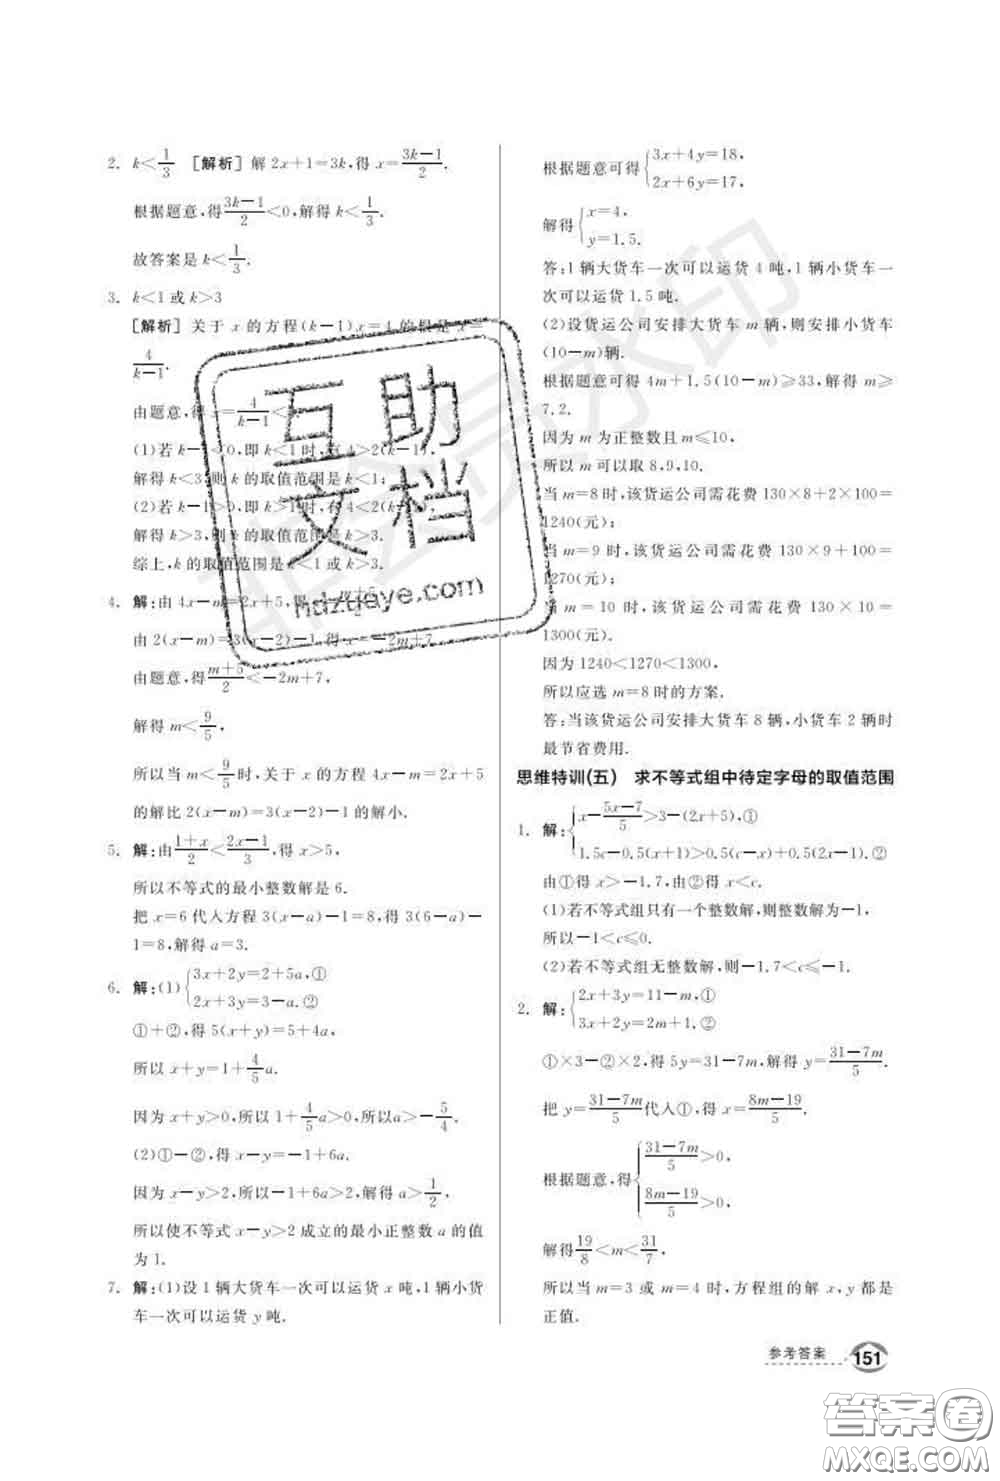 2. k<1/3 [解析] 解 2x+1=3k,得 x=(3k-1)/2.
根据题意,得(3k-1)/2<0,解得 k<1/3.
故答案是 k<1/3.
3. k<1 或 k>3
[解析] 关于 x 的方程(k-1)x=4 的根是 x=
4/(k-1).
由题意,得 x=4/(k-1)<
(1)若 k-1<0,即 k<1 时,有 4>2(k-1),
解得 k<3,则 k 的取值范围是 k<1;
(2)若 k-1>0,即 k>1 时,有 4<2(k-1),
解得 k>3,则 k 的取值范围是 k>3.
综上,k 的取值范围是 k<1 或 k>3.
4. 解:由 4x-m=2x+5,得
由 2(x-m)=3(x-2)-1,得 x=-2m+7.
由题意,得(m+5)/2<-2m+7,
解得 m<9/5,
所以当 m<9/5时,关于 x 的方程 4x-m=2x+5
的解比 2(x-m)=3(x-2)-1 的解小.
5. 解:由(1+x)/2<(2x-1)/3,得 x>5,
所以不等式的最小整数解是 6.
把 x=6 代入方程 3(x-a)-1=8,得 3(6-a)-
1=8,解得 a=3.
6. 解:(1){3x+2y=2+5a,①
2x+3y=3-a.②
①+②,得 5(x+y)=5+4a,
所以 x+y=1+4/5a.
因为 x+y>0,所以 1+4/5a>0,所以a>-5/4.
(2)①-②,得 x-y=-1+6a.
因为 x-y>2,所以-1+6a>2,解得 a>1/2,
所以使不等式 x-y>2 成立的最小正整数 a 的值
为 1.
7. 解:(1)设 1 辆大货车一次可以运货 x 吨,1 辆小货
车一次可以运货 y 吨.
根据题意可得{3x+4y=18,
2x+6y=17,
解得{x=4,
y=1.5.
答:1 辆大货车一次可以运货 4 吨,1 辆小货车一
次可以运货 1.5 吨.
(2)设货运公司安排大货车 m 辆,则安排小货车
(10-m)辆.
根据题意可得 4m+1.5(10-m)≥33,解得 m≥
7.2.
因为 m 为正整数且 m≤10,
所以 m 可以取 8,9,10.
当 m=8 时,该货运公司需花费 130×8+2×100=
1240(元);
当 m=9 时,该货运公司需花费 130×9+100=
1270(元);
当 m=10 时,该货运公司需花费 130×10=
1300(元).
因为 1240<1270<1300,
所以应选 m=8 时的方案.
答:当该货运公司安排大货车 8 辆,小货车 2 辆时
最节省费用.
思维特训(五) 求不等式组中待定字母的取值范围
1. 解:{x-(5x-7)/5>3-(2x+5),①
1.5c-0.5(x+1)>0.5(c-x)+0.5(2x-1).②
由①得 x>-1.7,由②得 x<c.
(1)若不等式组只有一个整数解,则整数解为-1,
所以-1<c≤0.
(2)若不等式组无整数解,则-1.7<c≤-1.
2. 解:{2x+3y=11-m,①
3x+2y=2m+1.②
①×3-②×2,得 5y=31-7m,解得 y=(31-7m)/5.
把 y=(31-7m)/5代入①,得 x=(8m-19)/5.
根据题意,得{(31-7m)/5>0,
(8m-19)/5>0,
解得19/8<m<31/7,
所以当 m=3 或 m=4 时,方程组的解 x,y 都是
正值.
参考答案 151
互助
文档
hdzuoye.com
非会员水印
答案卷
MXQE.COM